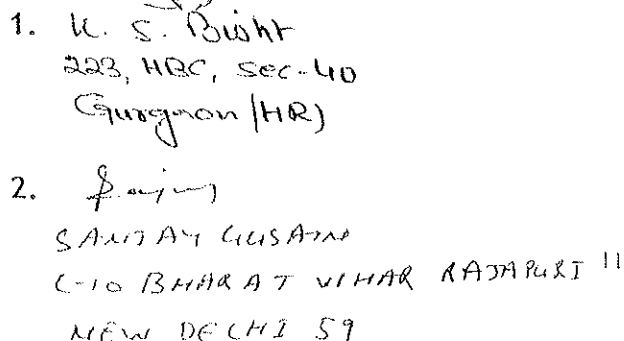 1. K. S. Bisht
223, HBC, Sec-40
Gurgaon (HR)
2.
SANJAY GUSAIN
C-10 BHARAT VIHAR RAJAPURI
NEW DELHI 59